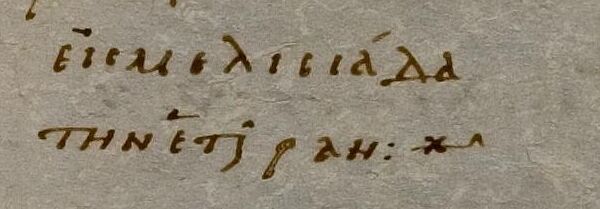 εἰς μελισιάδα
τὴν ἑταῖραν: